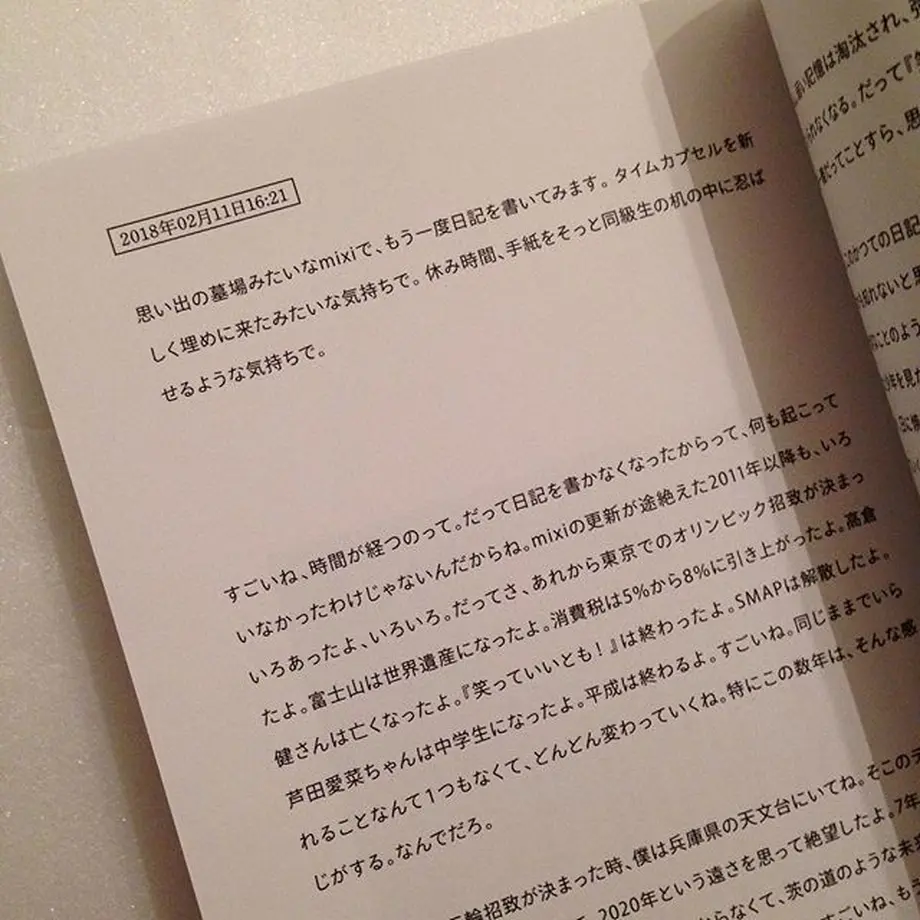 2018年02月11日16:21
思い出の墓場みたいなmixiで、もう一度日記を書いてみます。タイムカプセルを新
しく埋めに来たみたいな気持ちで。休み時間、手紙をそっと同級生の机の中に忍ば
せるような気持ちで。
すごいね、時間が経つのって。だって日記を書かなくなったからって、何も起こって
いなかったわけじゃないんだからね。mixiの更新が途絶えた2011年以降も、いろ
いろあったよ、いろいろ。だってさ、あれから東京でのオリンピック招致が決まっ
たよ。富士山は世界遺産になったよ。消費税は5%から8%に引き上がったよ。高倉
健さんは亡くなったよ。『笑っていいとも！』は終わったよ。SMAPは解散したよ。
芦田愛菜ちゃんは中学生になったよ。平成は終わるよ。すごいね。同じままでいら
れることなんて1つもなくて、どんどん変わっていくね。特にこの数年は、そんな感
じがする。なんでだろ。
輪招致が決まった時、僕は兵庫県の天文台にいてね。そこのテ
2020年という遠さを思って絶望したよ。7年
らなくて、茨の道のような未来
ごいね、もう
記憶は淘汰され、
れなくなる。だって『
だってことすら、思
かつての日記
れないと思
ことのよう
年を見た